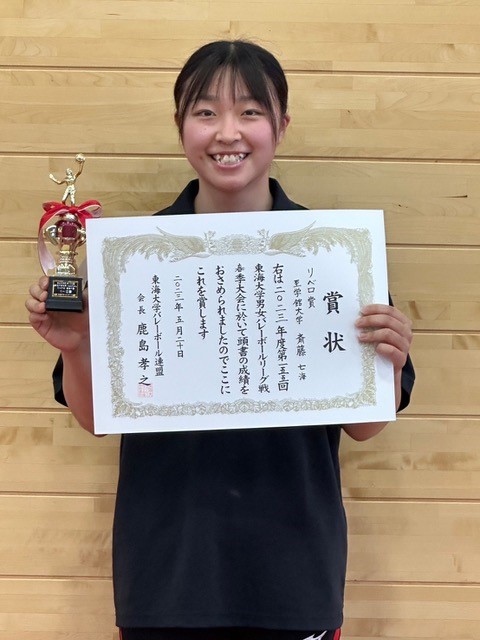 賞状
リベロ賞
至学館大学 斉藤 七海
右は二〇二三年度第一五五回
東海大学男女バレーボールリーグ戦
春季大会に於いて頭書の成績を
おさめられましたのでここに
これを賞します
二〇二三年 五月二十日
東海大学バレーボール連盟
会長 鹿島 孝之